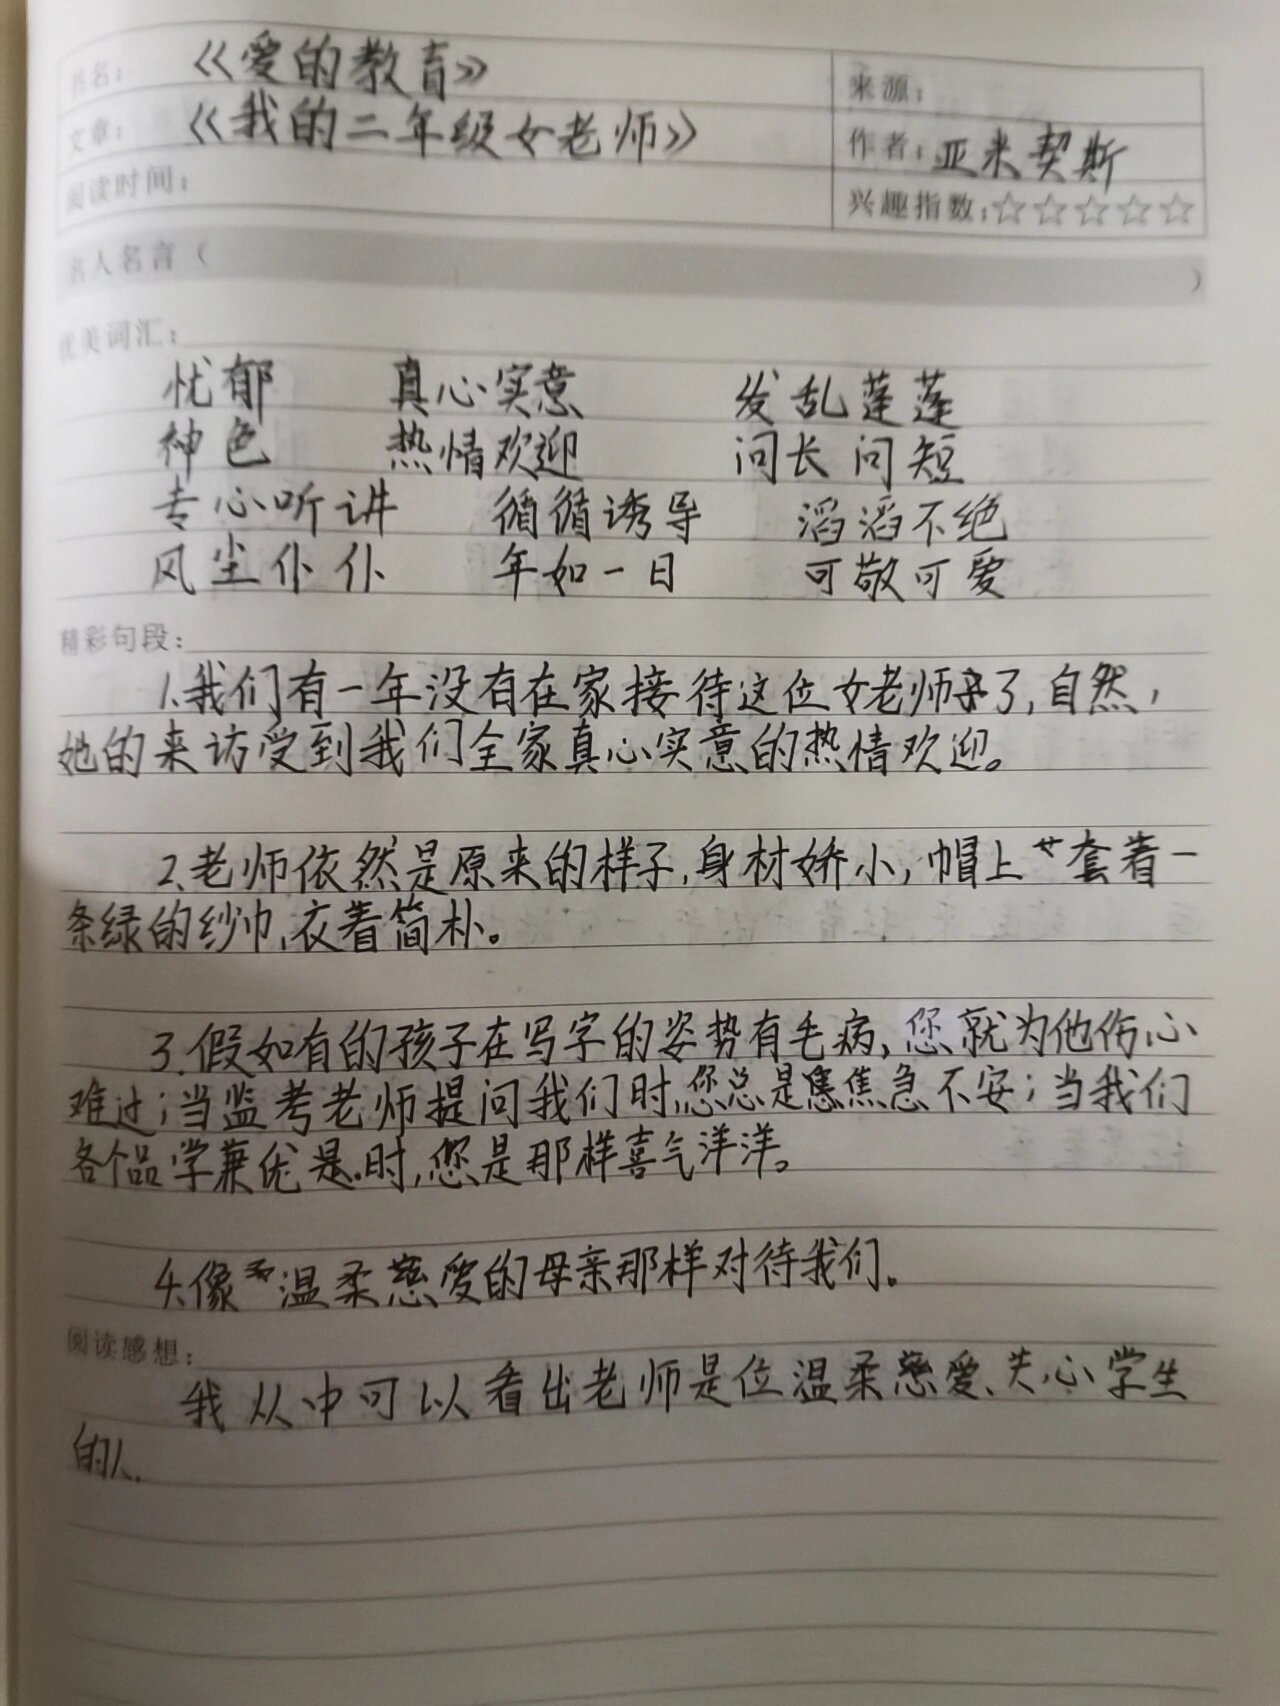 书名：《爱的教育》
来源：
文章：《我的二年级女老师》
作者：亚米契斯
阅读时间：
兴趣指数：☆☆☆☆☆
名人名言（ ）
优美词汇：
忧郁 真心实意 发乱蓬蓬
神色 热情欢迎 问长问短
专心听讲 循循诱导 滔滔不绝
风尘仆仆 年如一日 可敬可爱
精彩句段：
1.我们有一年没有在家接待这位女老师了,自然,
她的来访受到我们全家真心实意的热情欢迎。
2.老师依然是原来的样子,身材娇小,帽上套着一
条绿的纱巾,衣着简朴。
3.假如有的孩子在写字的姿势有毛病,您就为他伤心
难过;当监考老师提问我们时,您总是焦急不安;当我们
各个品学兼优是时,您是那样喜气洋洋。
4.像温柔慈爱的母亲那样对待我们.
阅读感想：
我从中可以看出老师是位温柔慈爱、关心学生
的人.